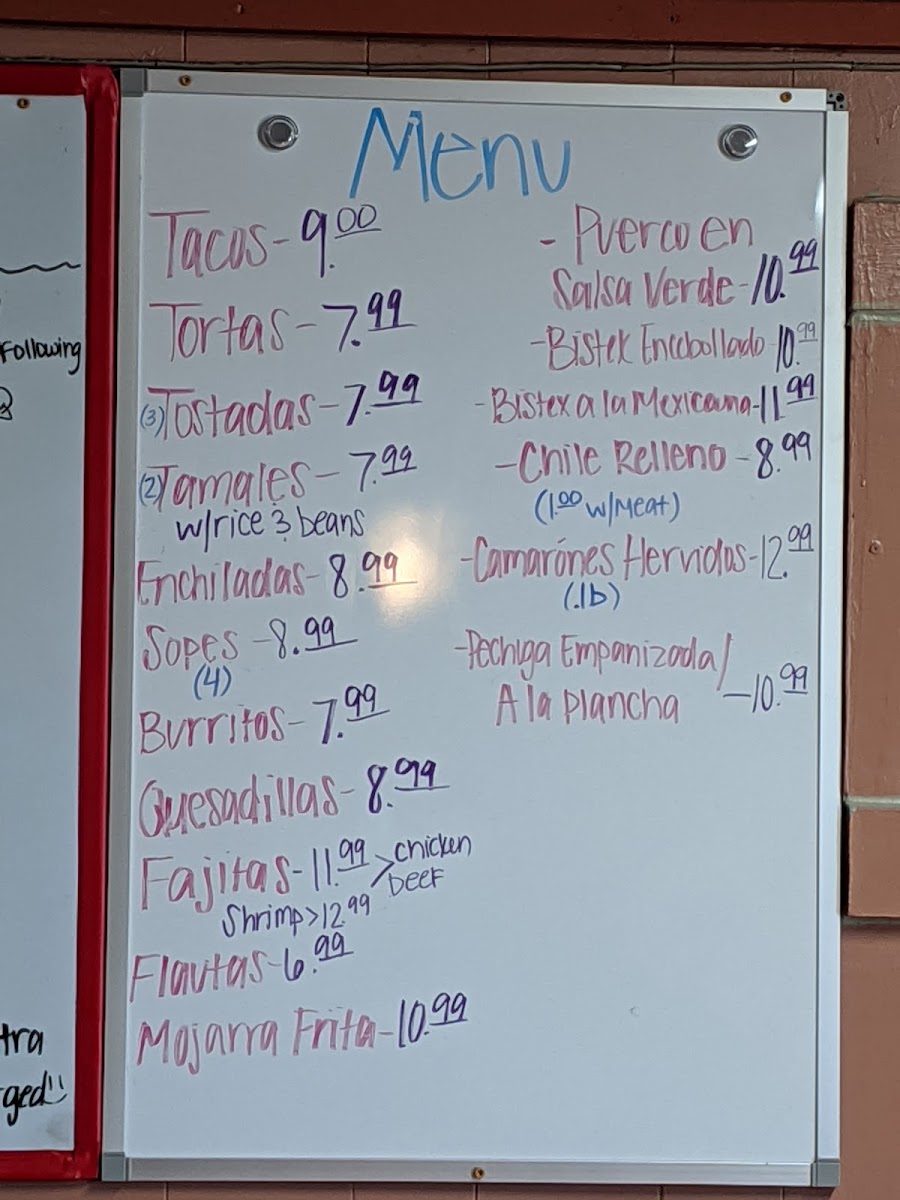 Menu
Tacos - 9.00
Tortas - 7.99
(3) Tostadas - 7.99
(2) Tamales - 7.99
w/rice & beans
Enchiladas - 8.99
Sopes - 8.99
(4)
Burritos - 7.99
Quesadillas - 8.99
Fajitas - 11.99 > chicken
beef
Shrimp > 12.99
Flautas - 6.99
Mojarra Frita - 10.99
- Puerco en
Salsa Verde - 10.99
- Bistek Encebollado 10.99
- Bistex a la Mexicana - 11.99
- Chile Relleno - 8.99
(1.00 w/Meat)
- Camarónes Hervidos - 12.99
(.1b)
- Pechuga Empanizada /
A la Plancha - 10.99
Following
tra
ged!!